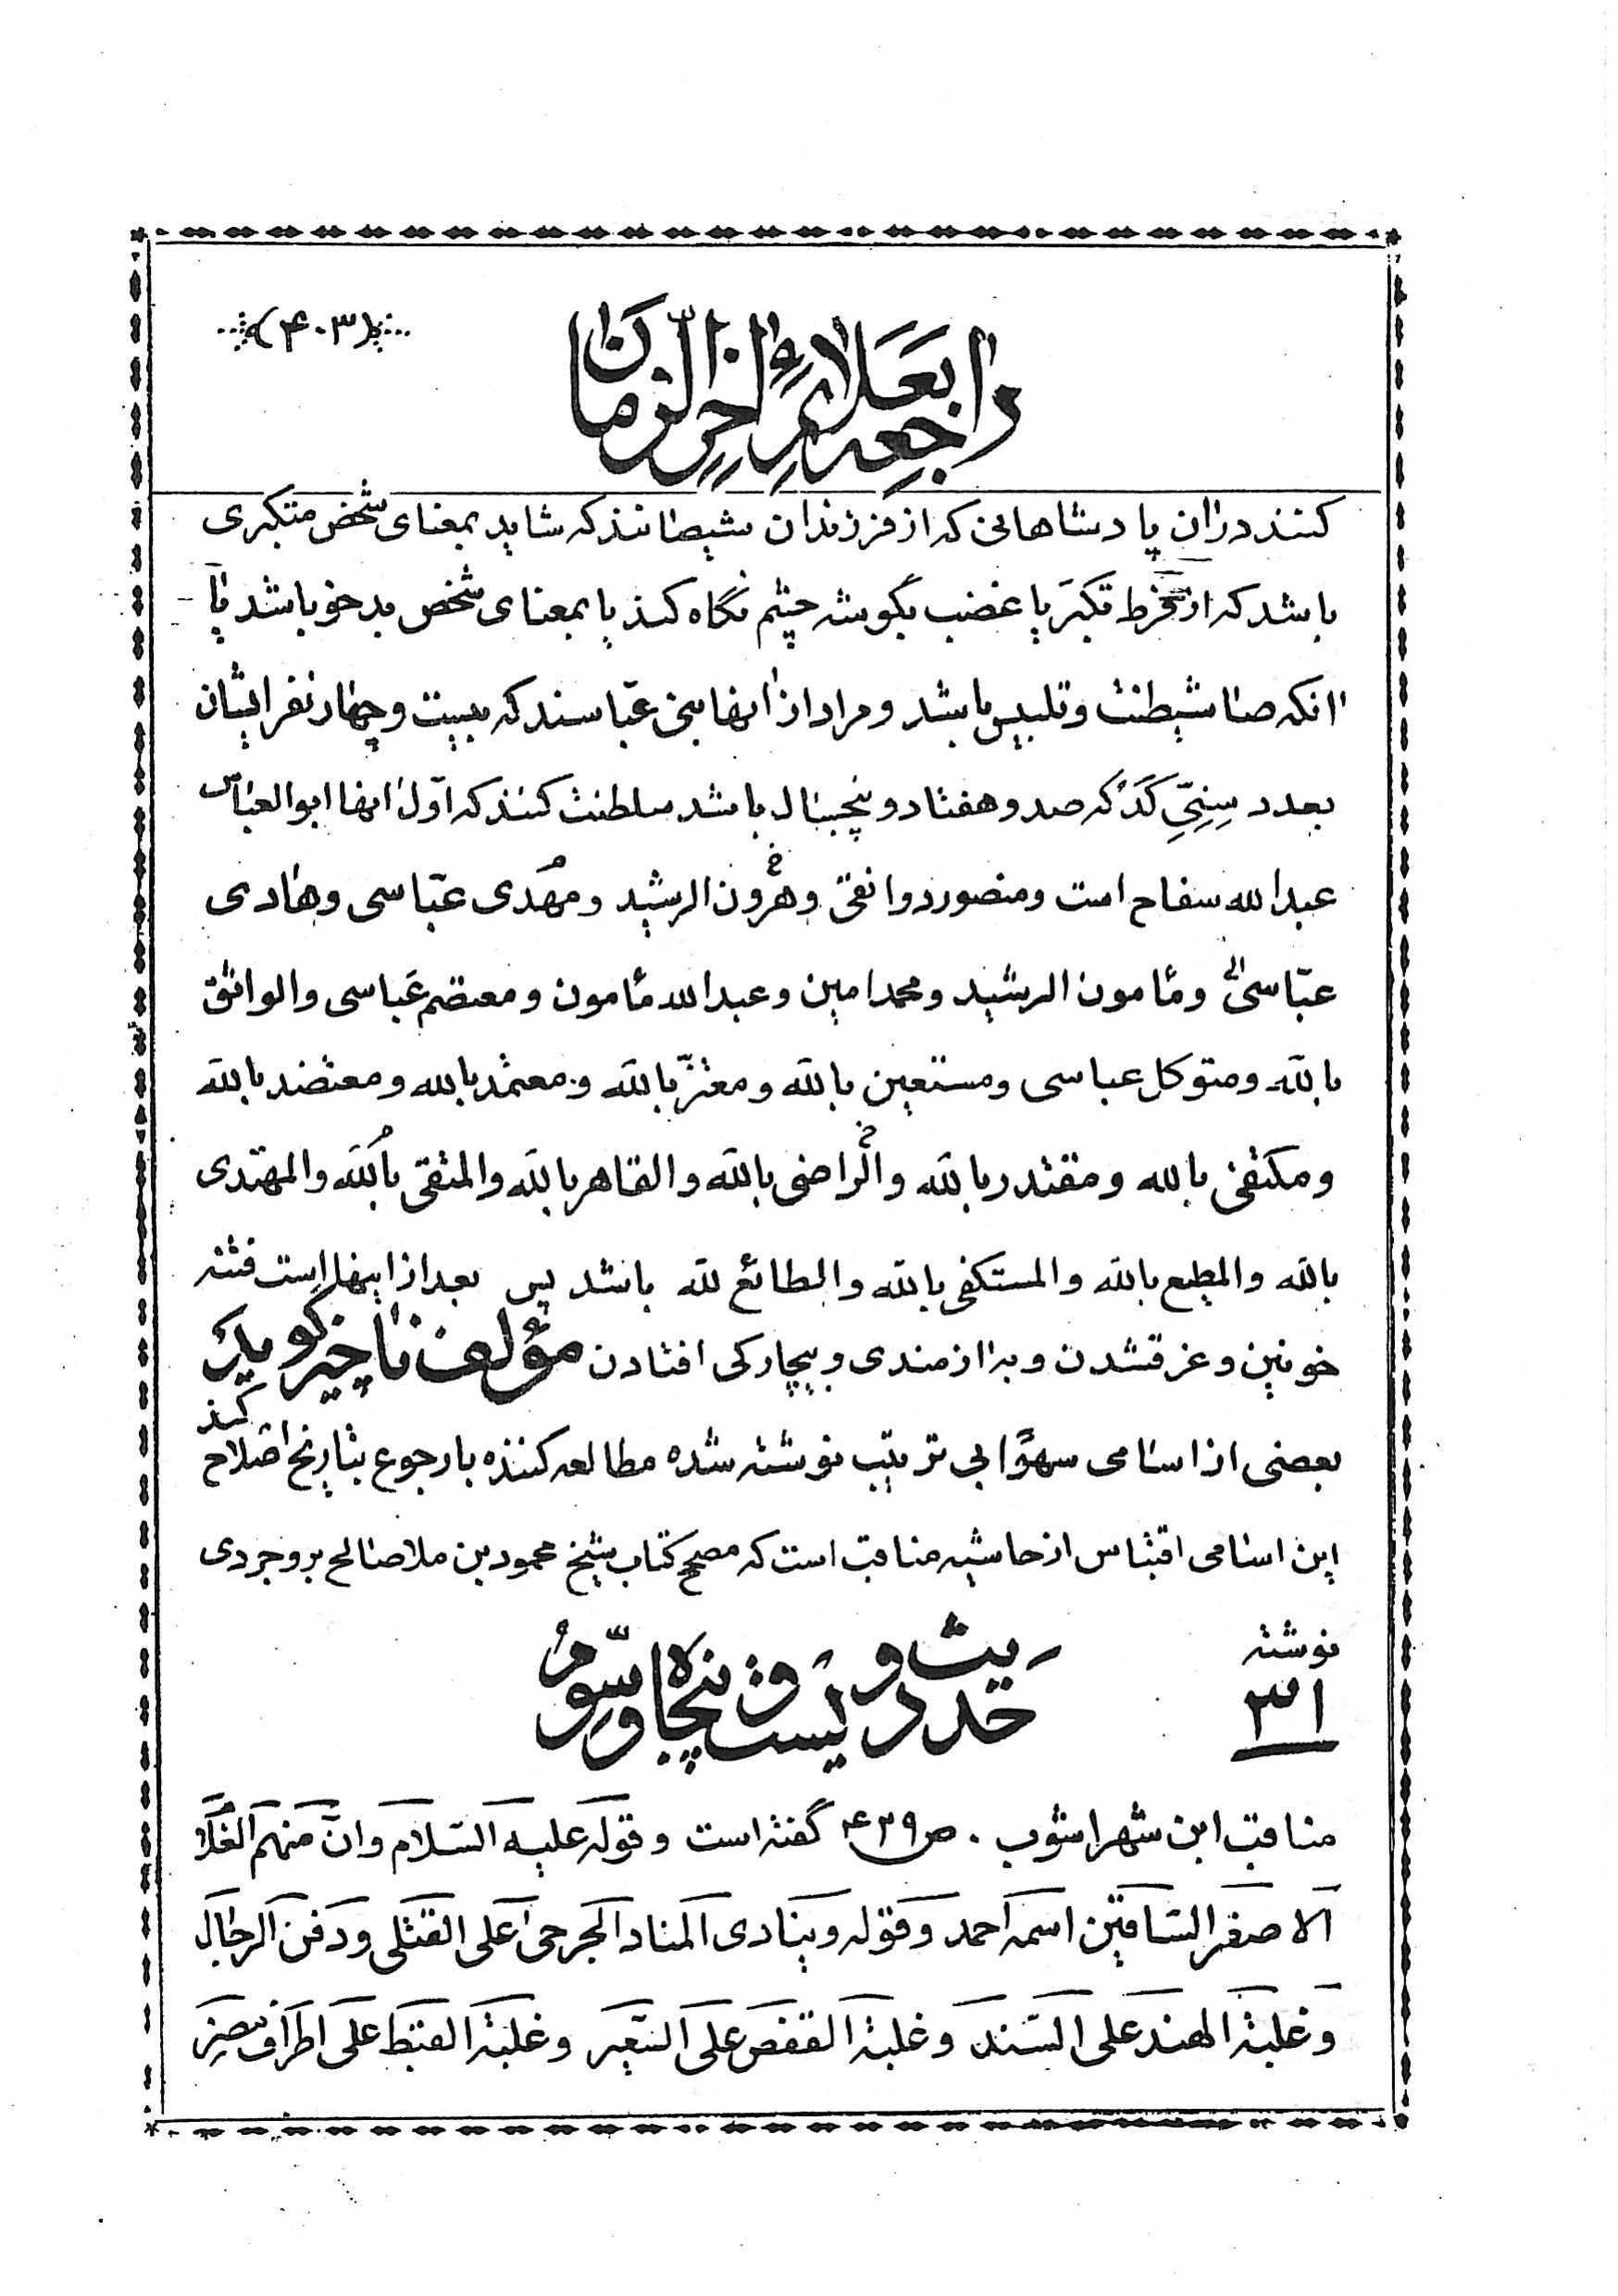 (۴۰۳)
راجع بعلائم آخر الزمان
کنند دران پادشاهانی که از فرزندان شیطانند که شاید بمعنای شخص متکبری
باشد که از فرط تکبر یا غضب بگوشه چشم نگاه کند یا بمعنای شخص بدخو باشد یا
انکه صاا شیطنت و تلبیس باشد و مراد از انها بنی عباسند که بیست و چهار نفر ایشان
بعدد سِنِیّ کَدُ که صد و هفتاد و پنجسال باشد سلطنت کنند که اول انها ابوالعباس
عبدالله سفاح است و منصور دوانقی وهرون الرشید خ و مهدی م عباسی و هادی
عباسی الی و مأمون الرشید و محمد امین و عبدالله مأمون و معتصم عباسی والواثق
بالله و متوکل عباسی و مستعین بالله و معتزّ بالله و معتمد بالله و معتضد بالله
و مکتفی بالله و مقتدر بالله والراضی خ بالله والقاهر بالله والمتقی بالله م والمهتدی
بالله والمطیع بالله والمستکفی بالله والطائع لله باشد پس بعد از اینها است فتنه
خونین و غرقشدن و بدازمندی و بیچارگی افتادن مؤلف ناچیز گوید
بعضی از اسامی سهوًا بی ترتیب نوشته شده مطالعه کننده با رجوع بتاریخ اصلاح کند
این اسامی اقتباس از حاشیه مناقب است که مصحح کتاب شیخ محمود بن ملاصالح بروجردی
نوشته
۳۱
حدیث دویست و پنجاه و سوم
مناقب ابن شهراشوب . ص۴۳۹ گفته است و قوله علیه السّلام وانّ منهم الغلام
الاصغر الساقین اسمه احمد وقوله وینادی المناد الجرحی علی القتلی ودفن الرجال
وغلبة الهند علی السّند وغلبة القفص علی السّعیر وغلبة القبط علی اطراف مصر